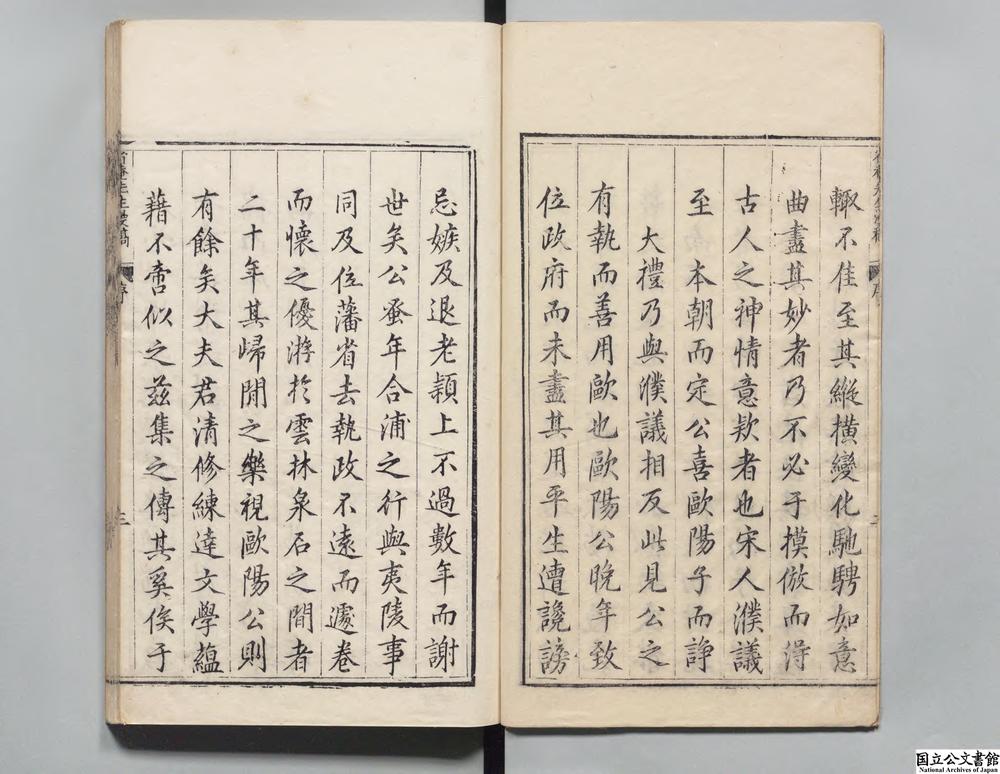 輙不佳至其縱横變化馳騁如意
曲盡其妙者乃不必于摸倣而淂
古人之神情意欵者也宋人濮議
至 本朝而定公喜歐陽子而諍
大禮乃與濮議相反此見公之
有執而善用歐也歐陽公晚年致
位政府而未盡其用平生遭讒謗
忌嫉及退老潁上不過數年而謝
世矣公蚤年合浦之行與夷陵事
同及位藩省去執政不遠而遽卷
而懷之優游於雲林泉石之間者
二十年其歸閒之樂視歐陽公則
有餘矣大夫君清修練達文學蘊
藉不啻似之玆集之傳其奚俟于
序
三
国立公文書館
National Archives of Japan